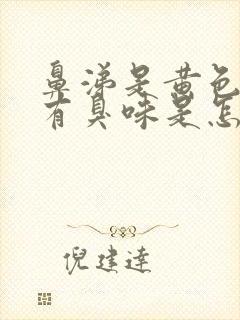 鼻涕是黄色
有臭味是怎
倪建达